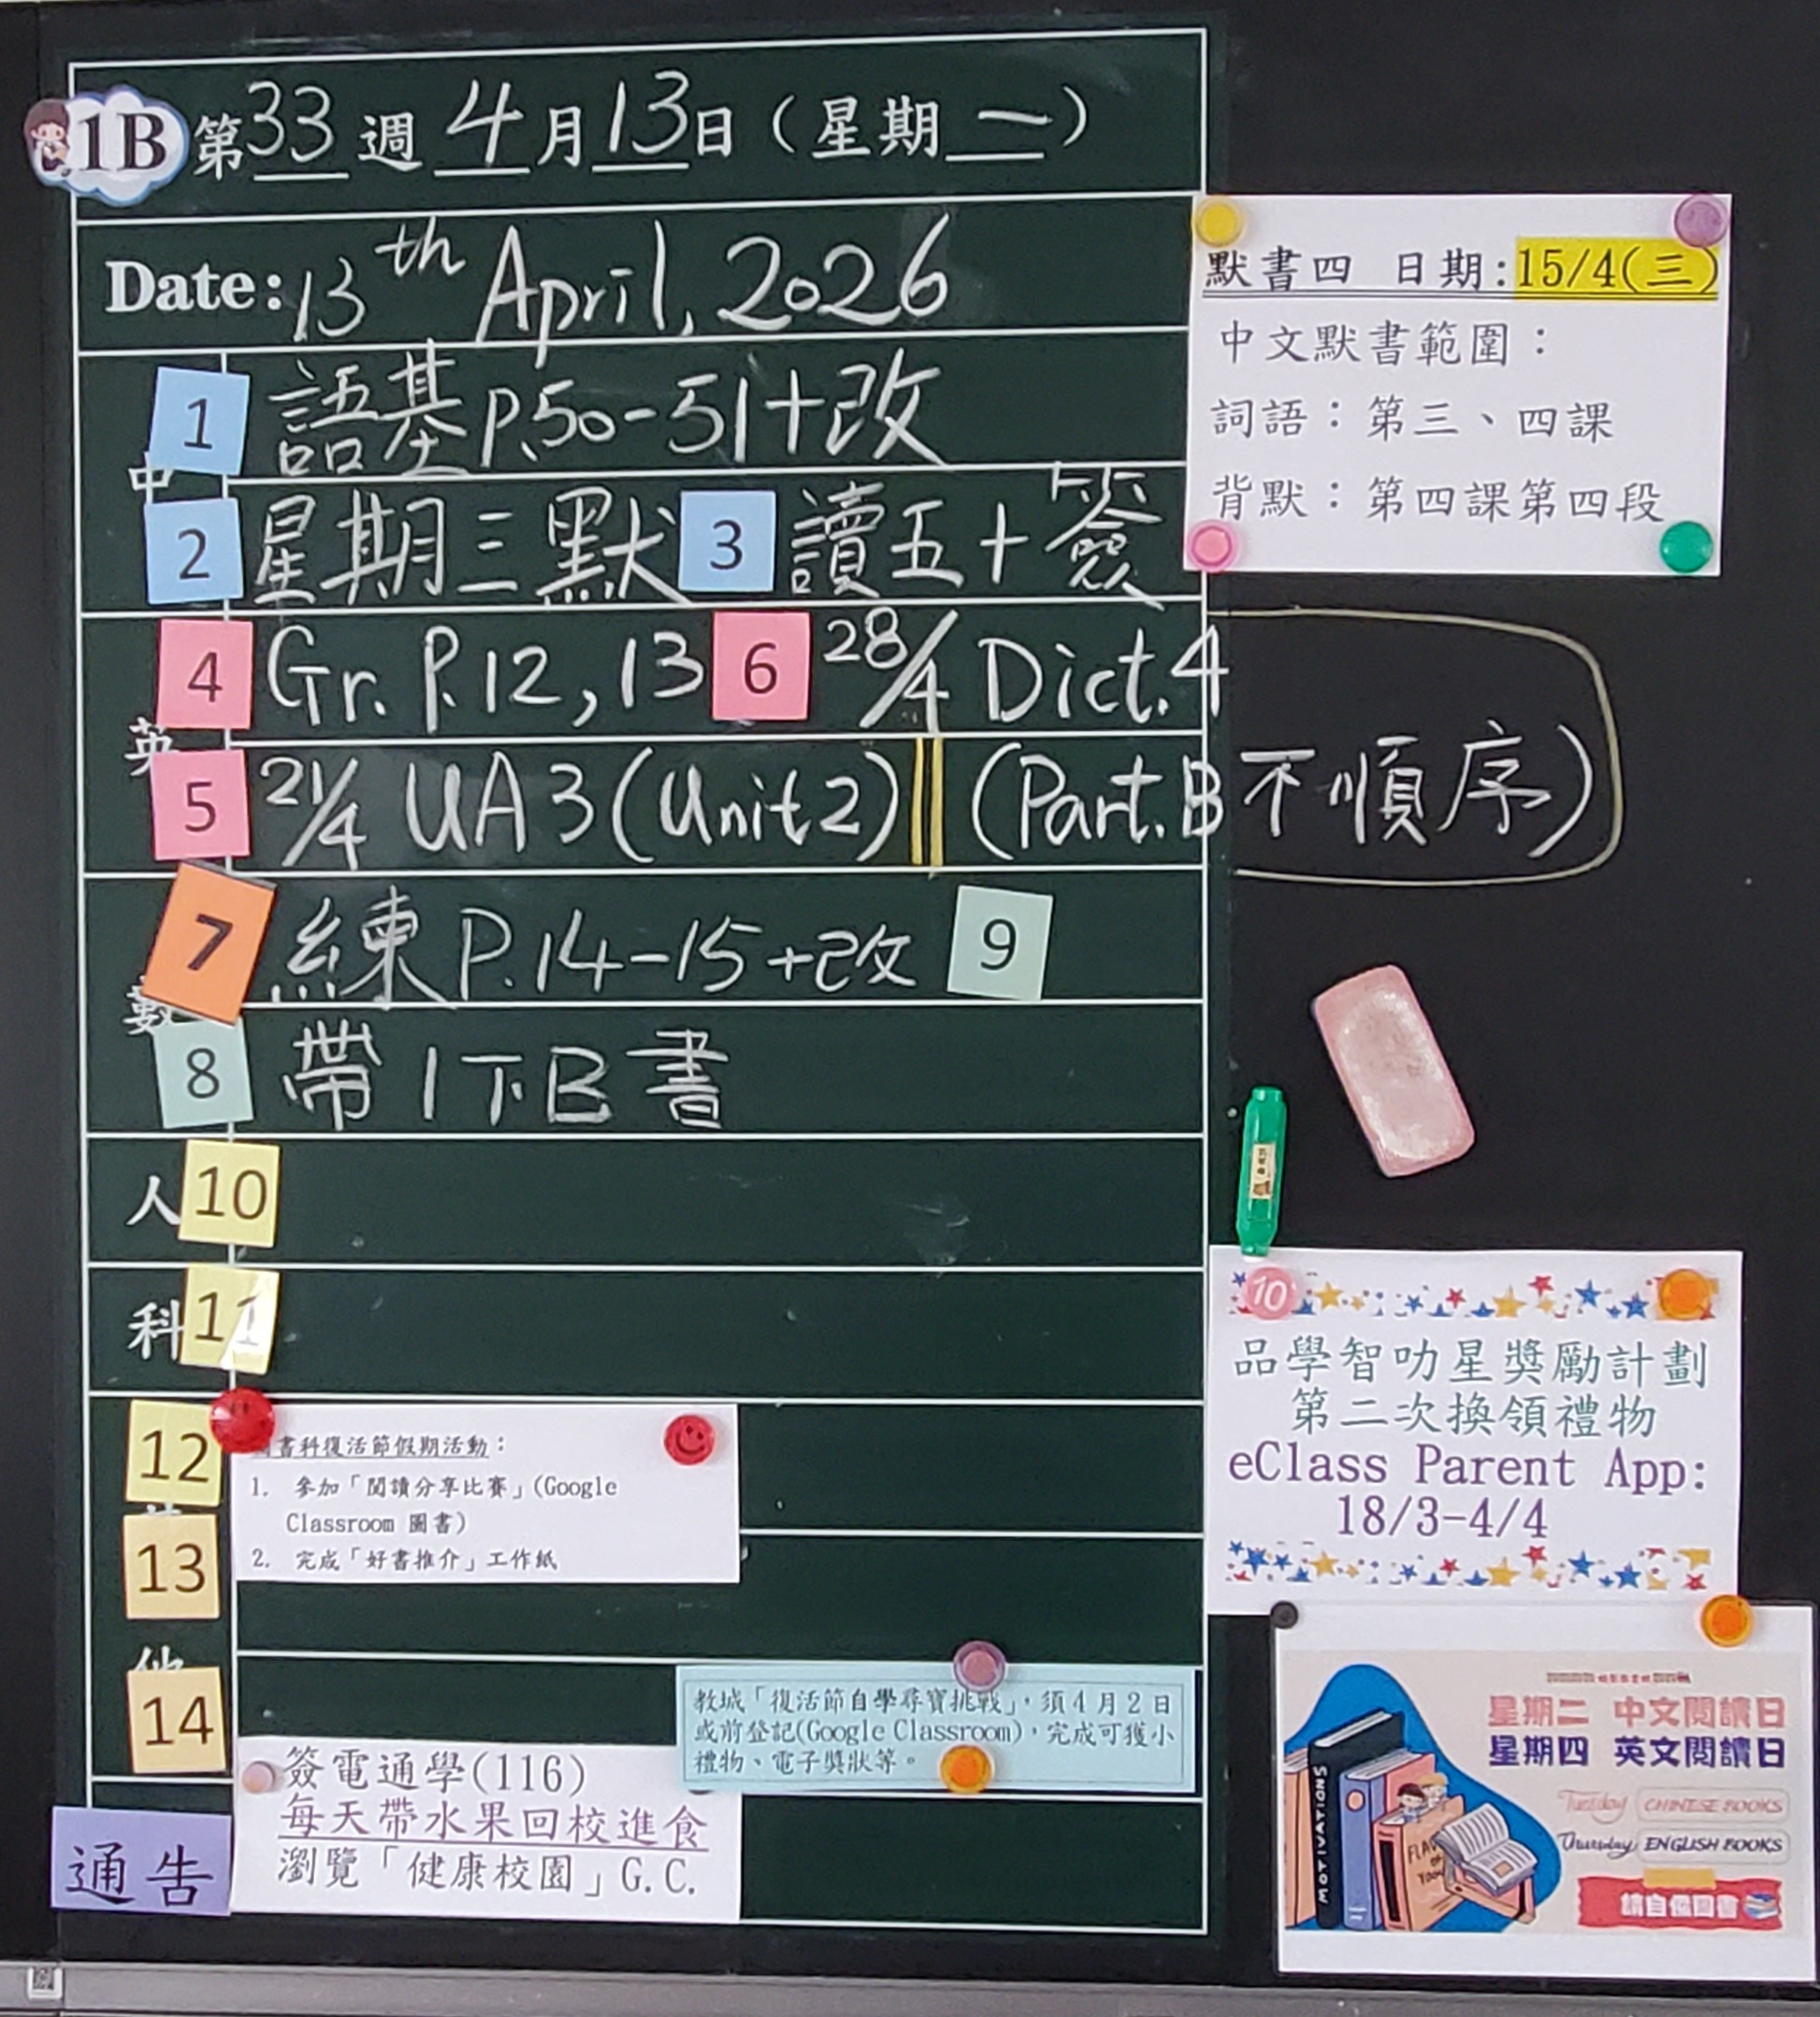 1B 第33週 4月13日（星期一）
Date: 13th April, 2026
中
1 語基P.50-51+改
2 星期三默 3 讀五+簽
英
4 Gr. P.12, 13 6 28/4 Dict.4
5 21/4 UA3(Unit2) (Part.B不順序)
數
7 練P.14-15+改 9
8 帶1下B書
人 10
科 11
12
13
他
14
書科復活節假期活動：
1. 參加「閱讀分享比賽」(Google
Classroom 圖書)
2. 完成「好書推介」工作紙
教城「復活節自學尋寶挑戰」，須4月2日
或前登記(Google Classroom)，完成可獲小
禮物、電子獎狀等。
通告
簽電通學(116)
每天帶水果回校進食
瀏覽「健康校園」G.C.
默書四 日期:15/4(三)
中文默書範圍：
詞語：第三、四課
背默：第四課第四段
10
品學智叻星獎勵計劃
第二次換領禮物
eClass Parent App:
18/3-4/4
星期二 中文閱讀日
星期四 英文閱讀日
Tuesday CHINESE BOOKS
Thursday ENGLISH BOOKS
請自備圖書
MOTIVATIONS